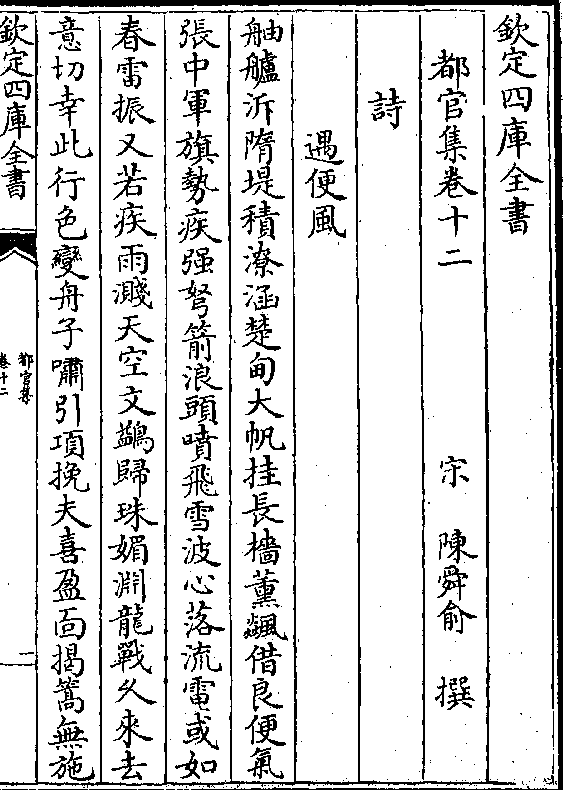 欽定四庫全書
都官集卷十二
宋 陳舜俞 撰
詩
遇便風
舳艫泝隋堤積潦涵楚甸大帆挂長檣薰飇借良便氣
張中軍旗勢疾强弩箭浪頭噴飛雪波心落流電或如
春雷振又若疾雨濺天空文鷁歸珠媚淵龍戰乆來去
意切幸此行色變舟子嘯引項挽夫喜盈面揭篙無施
欽定四庫全書
都官集
卷十二